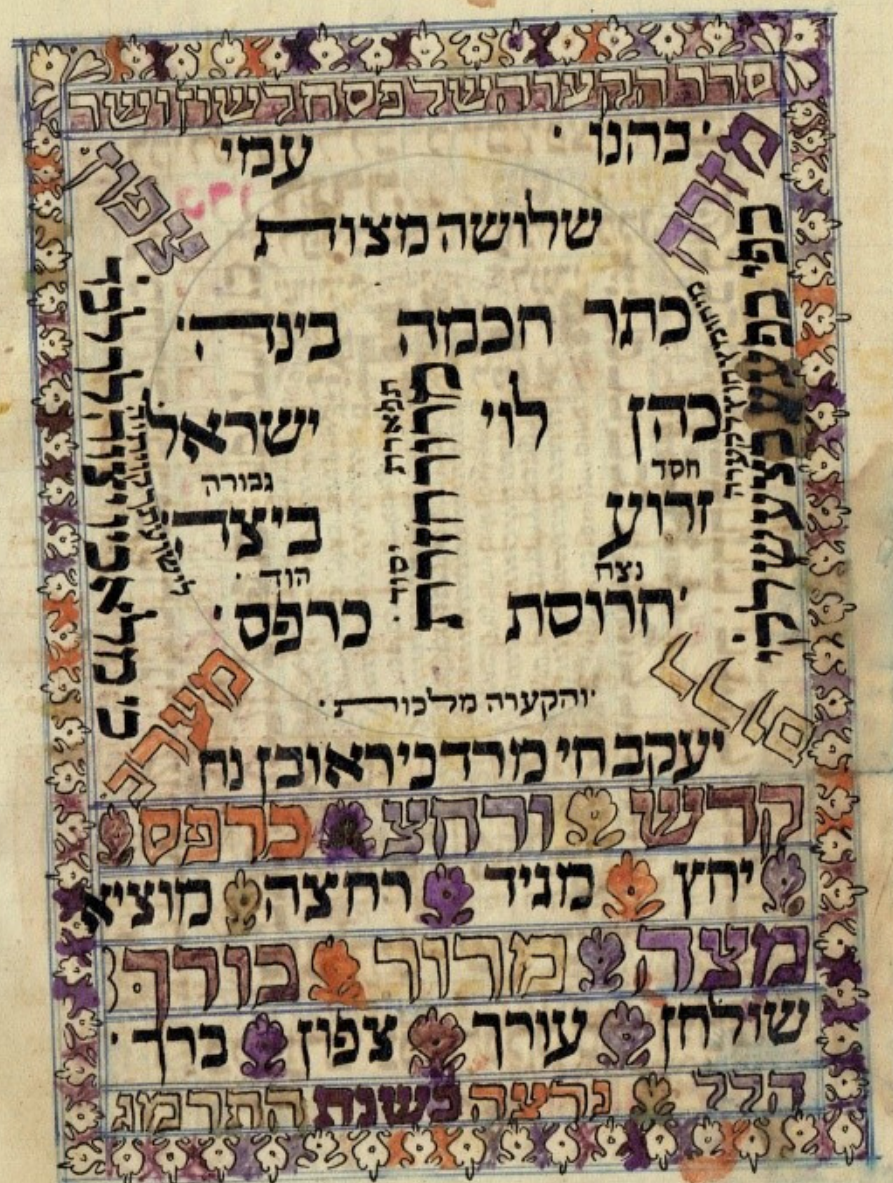 סדר הקערה של פסח לששון ושר
כהנו עמי
מזרח
צפון
שלושה מצות
כתר חכמה בינה
כהן לוי ישראל
חסד גבורה
תפארת
זרוע ביצה
נצח הוד
יסוד
חרוסת כרפס
מרור חזרת
והקערה מלכות
דרום
מערב
יעקב חי מרדכי ראובן נח
קדש ורחצ כרפס
יחץ מגיד רחצה מוציא
מצה מרור כורך
שולחן עורך צפון ברך
הלל נרצה בשנת התרמג